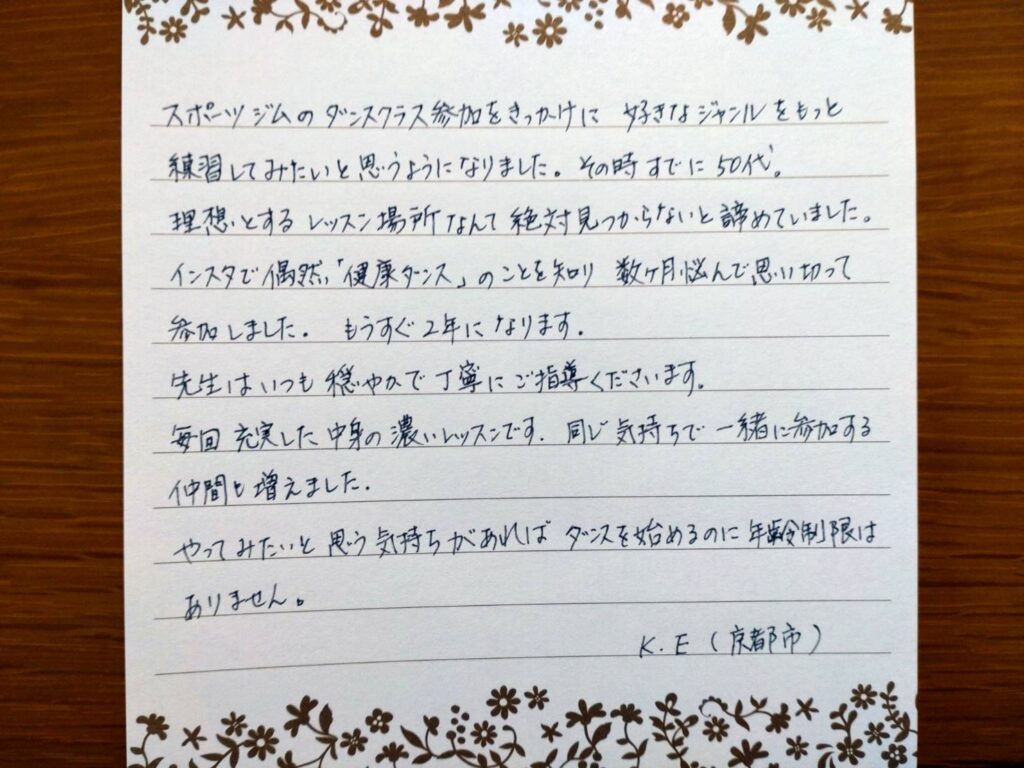 スポーツジムのダンスクラス参加をきっかけに 好きなジャンルをもっと
練習してみたいと思うようになりました。その時すでに50代。
理想とするレッスン場所なんて絶対見つからないと諦めていました。
インスタで偶然「健康ダンス」のことを知り 数ヶ月悩んで思い切って
参加しました. もうすぐ2年になります.
先生はいつも穏やかで丁寧にご指導くださいます。
毎回 充実した中身の濃いレッスンです. 同じ気持ちで一緒に参加する
仲間も増えました.
やってみたいと思う気持ちがあれば ダンスを始めるのに年齢制限は
ありません。
K.E（京都市）